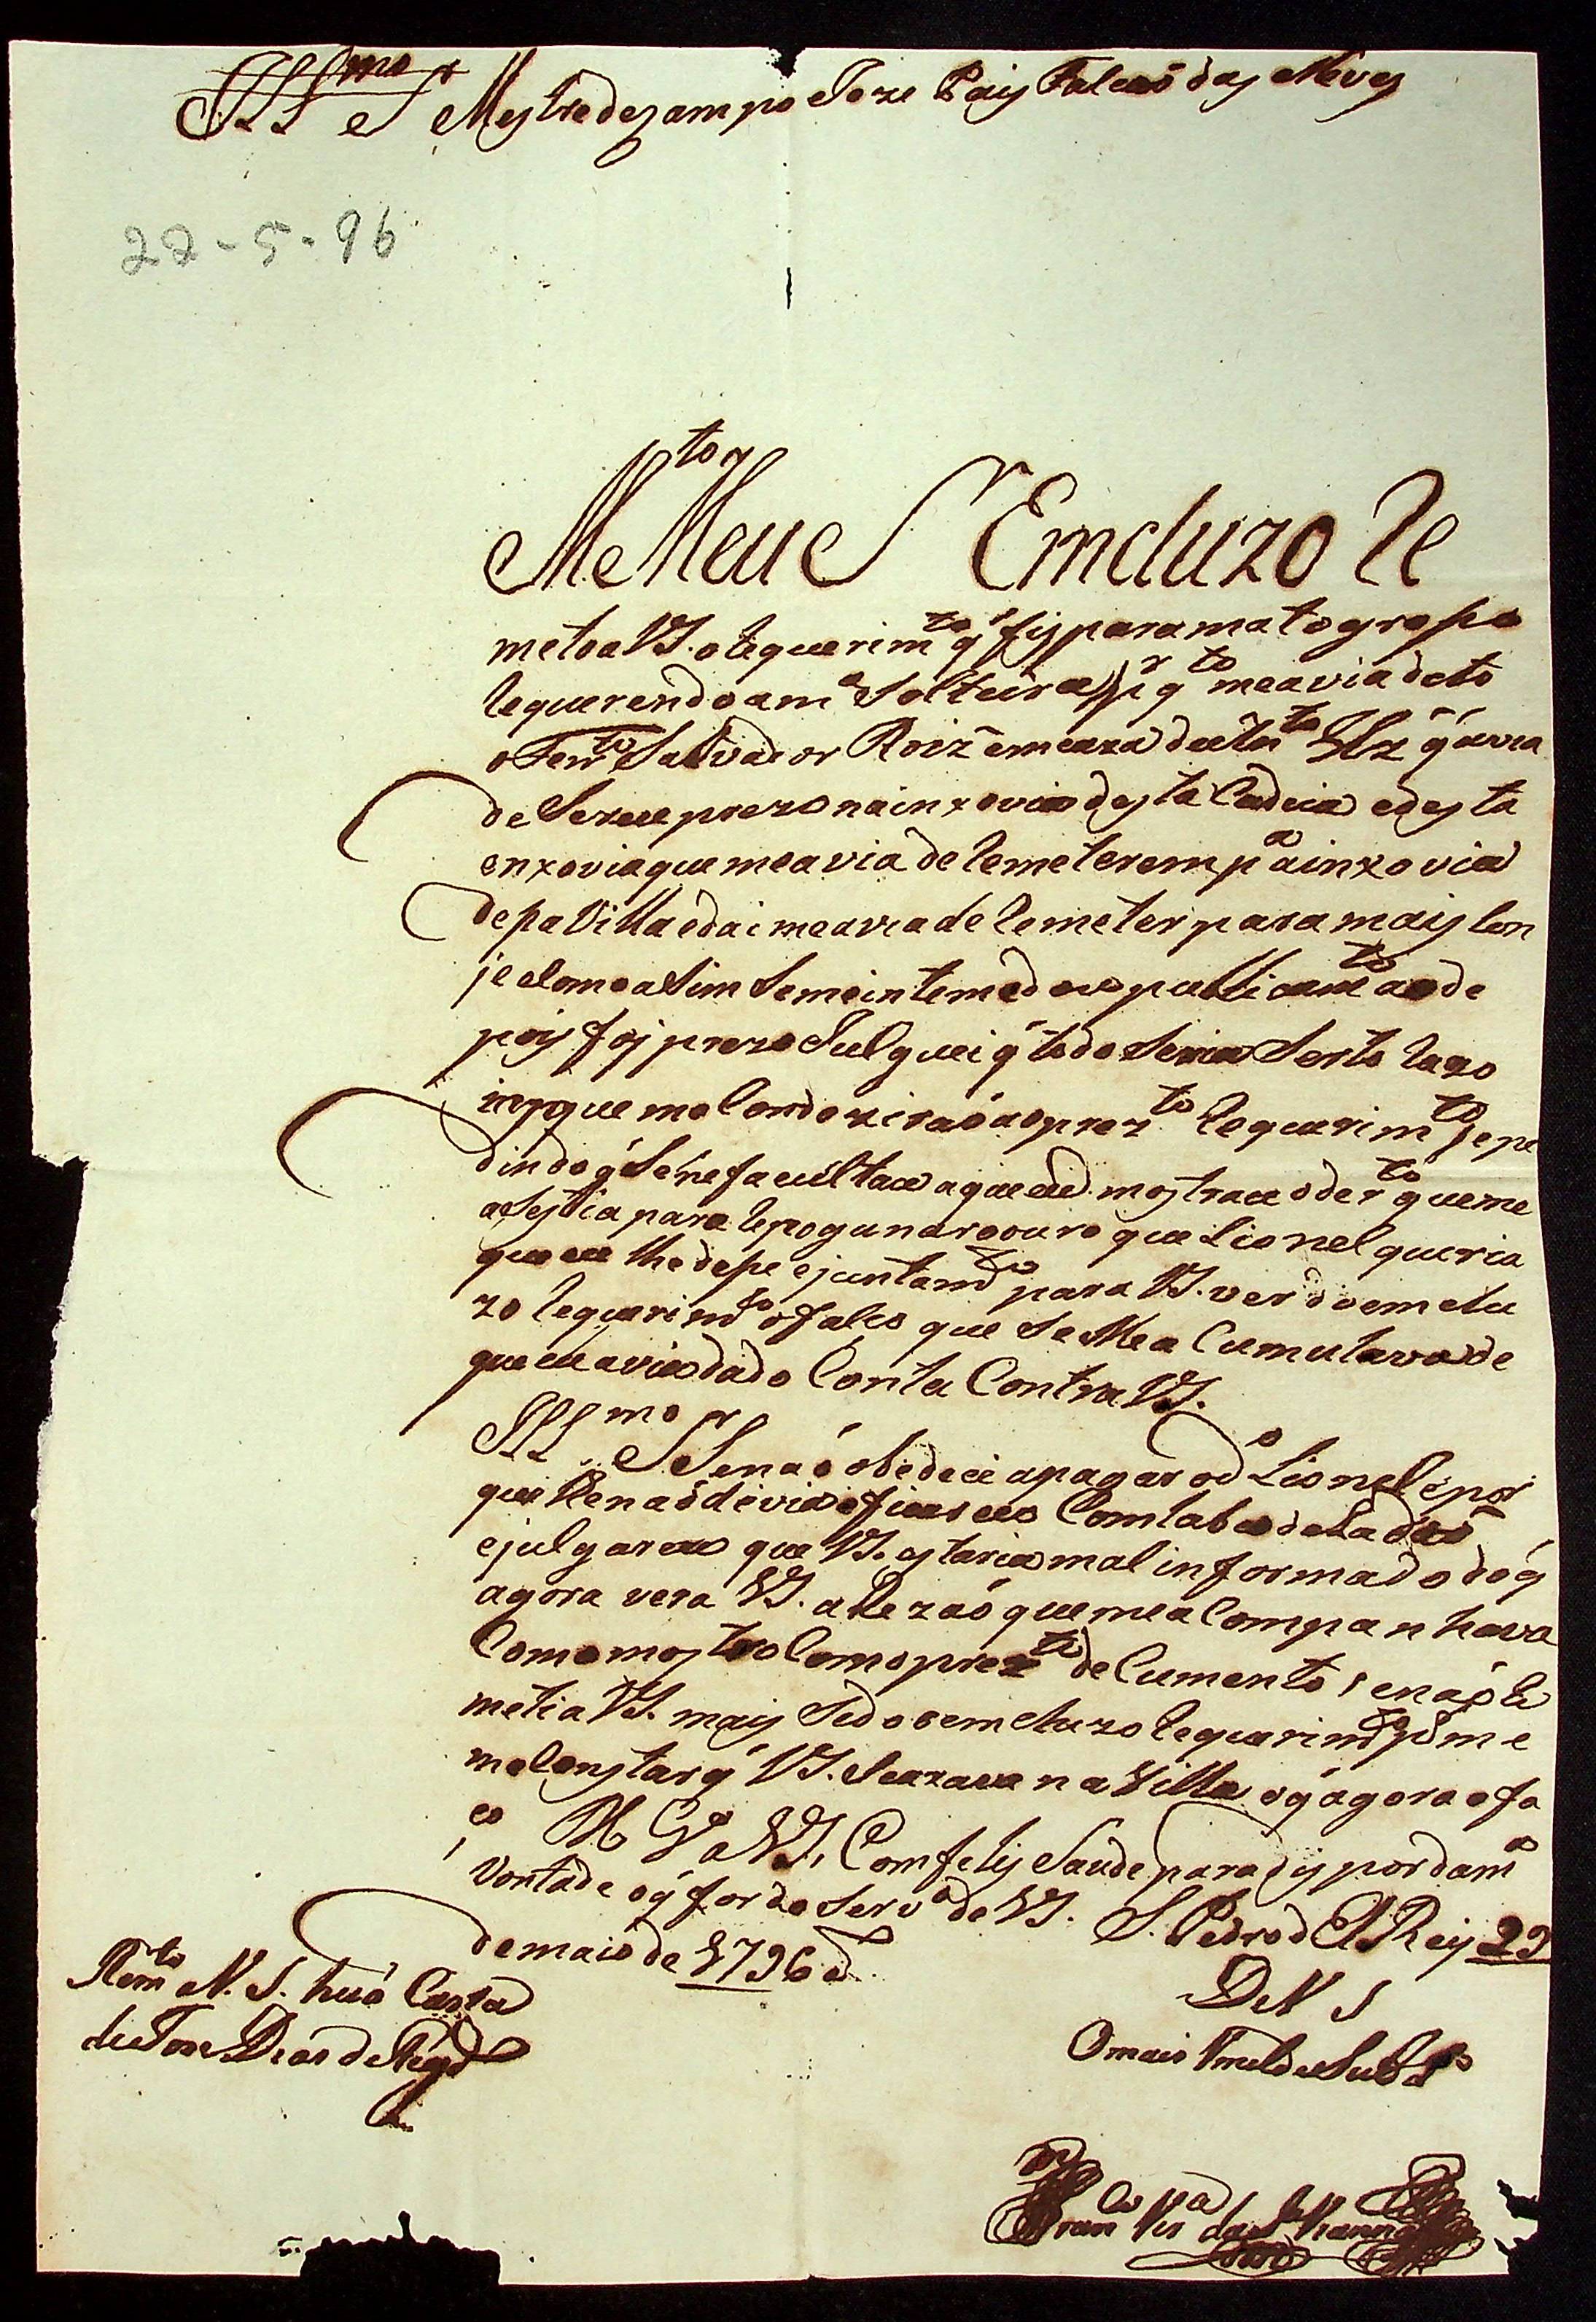 Ill.mo S.r Mestre de campo Joze Pais Falcaõ das Neves
22-5-96
M.to Meu S.r Emcluzo Re
meto a VS. o requerim.to q' fis para mato groço
requerendo a m.a soltura p.r q.to me avia dito
o Ten.te Salvador Roiz' em caza de q' avia
de ser prezo na inxovia desta Cadeia e desta
enxovia que me avia de remeter em p.a a inxovia
desa Villa e dai me avia de remeter para mais lon
je e como asim se me intemedou publicam.te ao de
pois foj prezo Julguei q' todo seria serto razo
is que me Conduziraõ ao prez.te requerim.to e pe
dindo q' se me facultace a que eu mostrace o der.to que me
asestia para repogunar o ouro que Lionel queria
que eu lhe dese e juntam.te para VS. ver do emclu
zo requerim.to o falço que se Me aCumulava de
que eu avia dado Conta Contra VS.
Ill.mo S.r Se naõ obedeci a pagar o d.o Lionel é por
que lhe naõ devia e ficar eu Com taboa de Ladraõ
e julgar eu que VS. estaria mal informado do q'
agora vera VS. a Rezaõ que me aCompanhava
Como mostro Com o prez.te deCumento, e naõ re
meti a VS. mais sedo o emcluzo requerim.to p.r me
me Constar q' VS. se axava na Villa o q' agora o fa
ço D.s G.e a VS. Com felis Saude para dispor da m.a
vontade o q' for do serv.o de VS. S. Pedro d El Rey 29
de maio de 1796 a.
Rem.to a V. S. huã Carta
de Joze Dias
De V S
O mais umilde Sub.to
Fran.co V.ra da S.a Vianna